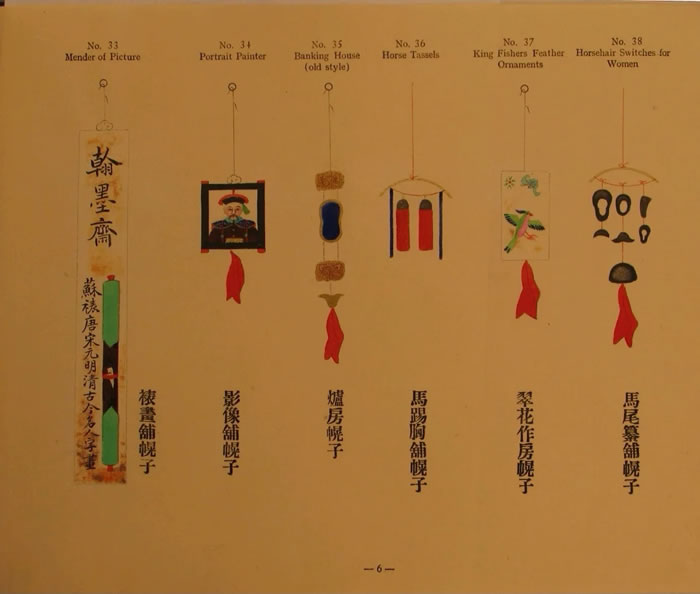 No. 33
Mender of Picture
No. 34
Portrait Painter
No. 35
Banking House
(old style)
No. 36
Horse Tassels
No. 37
King Fishers Feather
Ornaments
No. 38
Horsehair Switches for
Women
翰墨齋
蘇裱唐宋元明清古今名人字畫
裱畫舖幌子
影像舖幌子
爐房幌子
馬踢胸舖幌子
翠花作房幌子
馬尾纂舖幌子
—6—